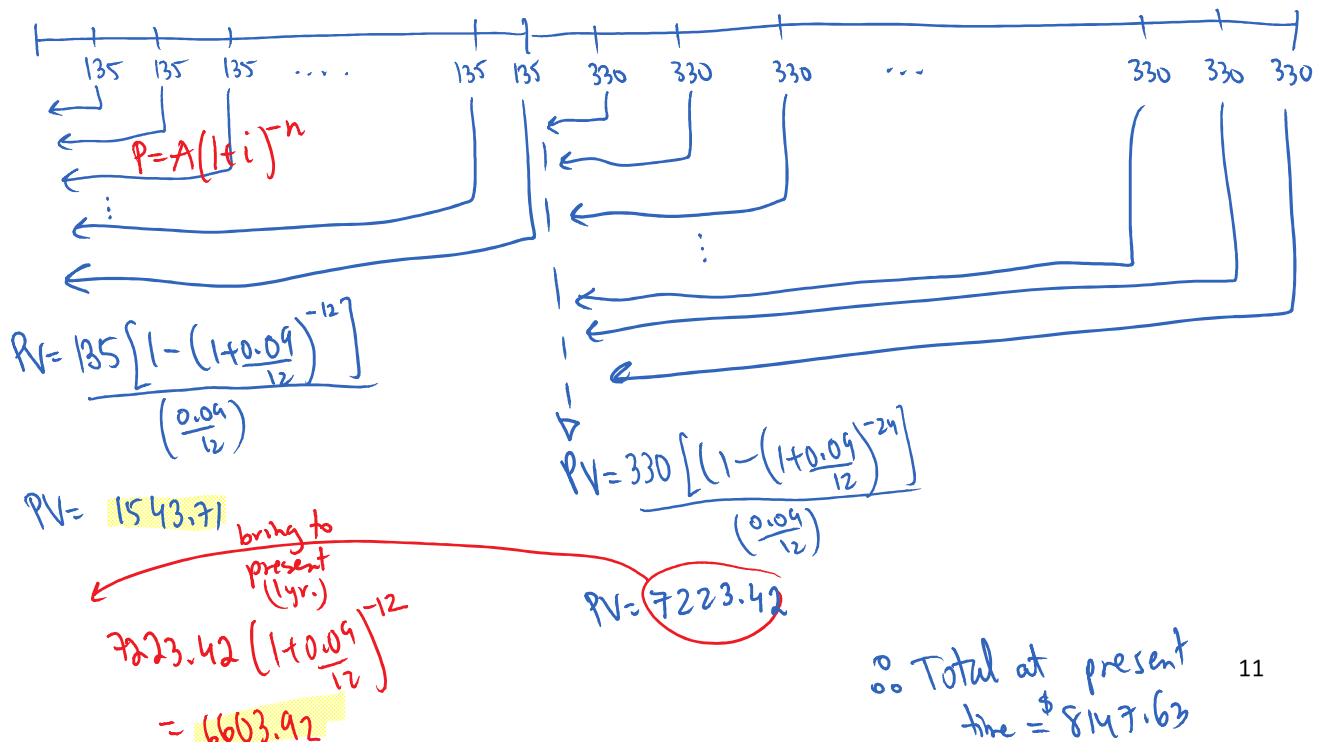 135 135 135 ..... 135 135 330 330 330 ... 330 330 330
P=A(1+i)^-n
PV= 135[1-(1+0.09/12)^-12]/(0.09/12)
PV= 1543.71
PV= 330[(1-(1+0.09/12)^-24]/(0.09/12)
PV= 7223.42
bring to
present
(1yr.)
7223.42(1+0.09/12)^-12
= 6603.92
∴ Total at present
time = $8147.63
11